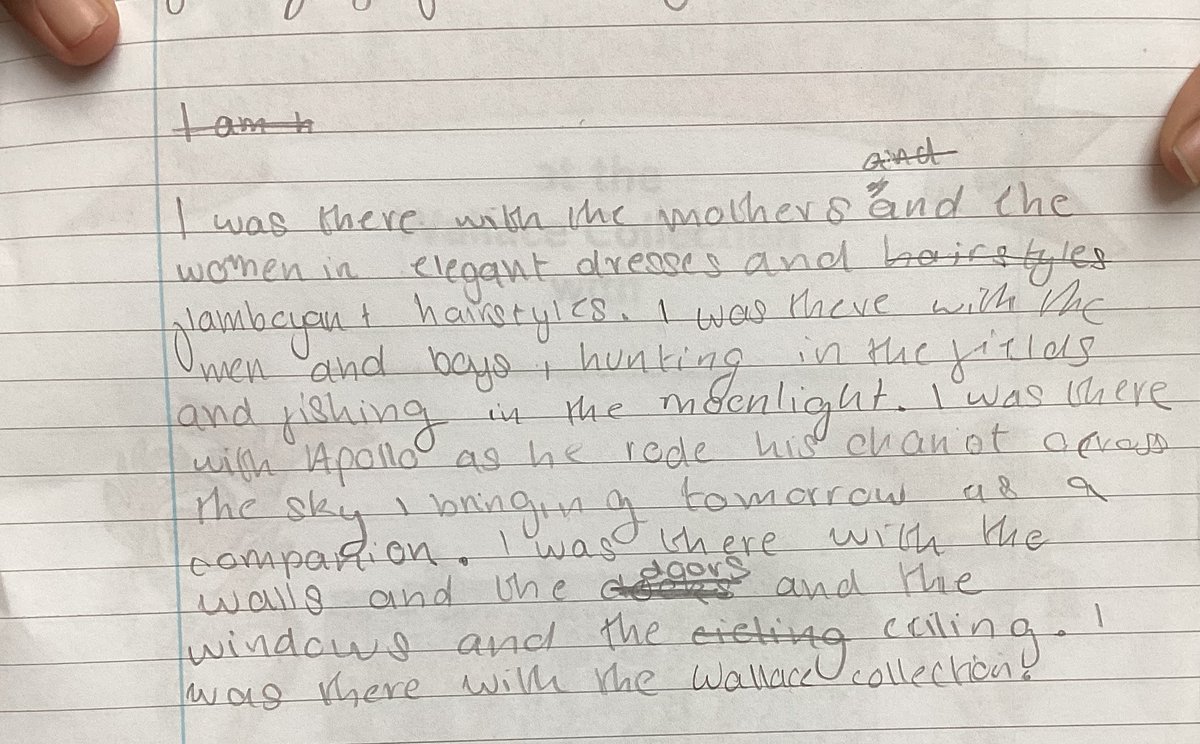 I am h
and
I was there with the mothers and the
women in elegant dresses and hairstyles
glamboyant hairstyles. I was there with the
men and boys, hunting in the fitlds
and fishing in the moonlight. I was there
with Apollo as he rode his chariot across
the sky, bringing tomorrow as a
companion. I was there with the
doors
walls and the doors and the
windows and the cieling ceiling. I
was there with the Wallace collection!